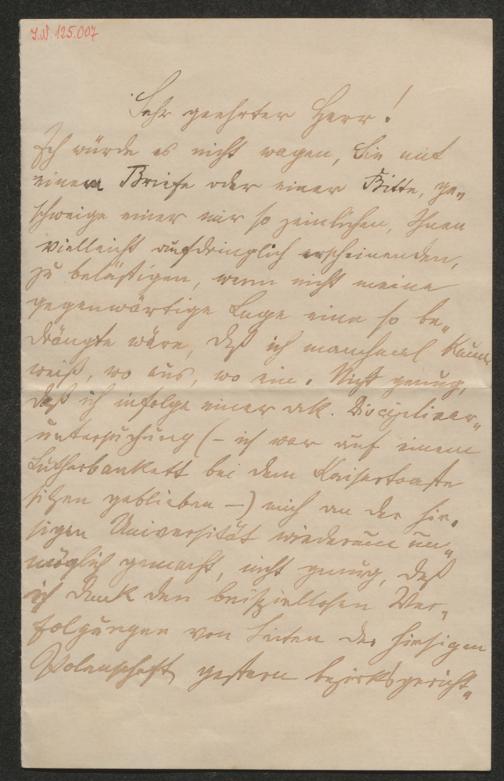 I.N 125.007
Sehr geehrter Herr!
Ich würde es nicht wagen, Sie mit
einem Briefe oder einer Bitte, ge„
schweige einer mir so peinlichen, Ihnen
vielleicht aufdringlich erscheinenden,
zu belästigen, wenn nicht meine
gegenwärtige Lage eine so be„
drängte wäre, daß ich manchmal kaum
weiß, wo aus, wo ein. Nicht genug,
daß ich infolge einer ak. Disciplinar„
untersuchung (– ich war auf einem
Lutherbankett bei dem Kaisertoaste
sitzen geblieben –) mich an der hie„
sigen Universität wiederum un„
möglich gemacht, nicht genug, daß
ich dank den beispiellosen Ver„
folgungen von Seiten der hiesigen
Polenschaft gestern bezirksgericht„